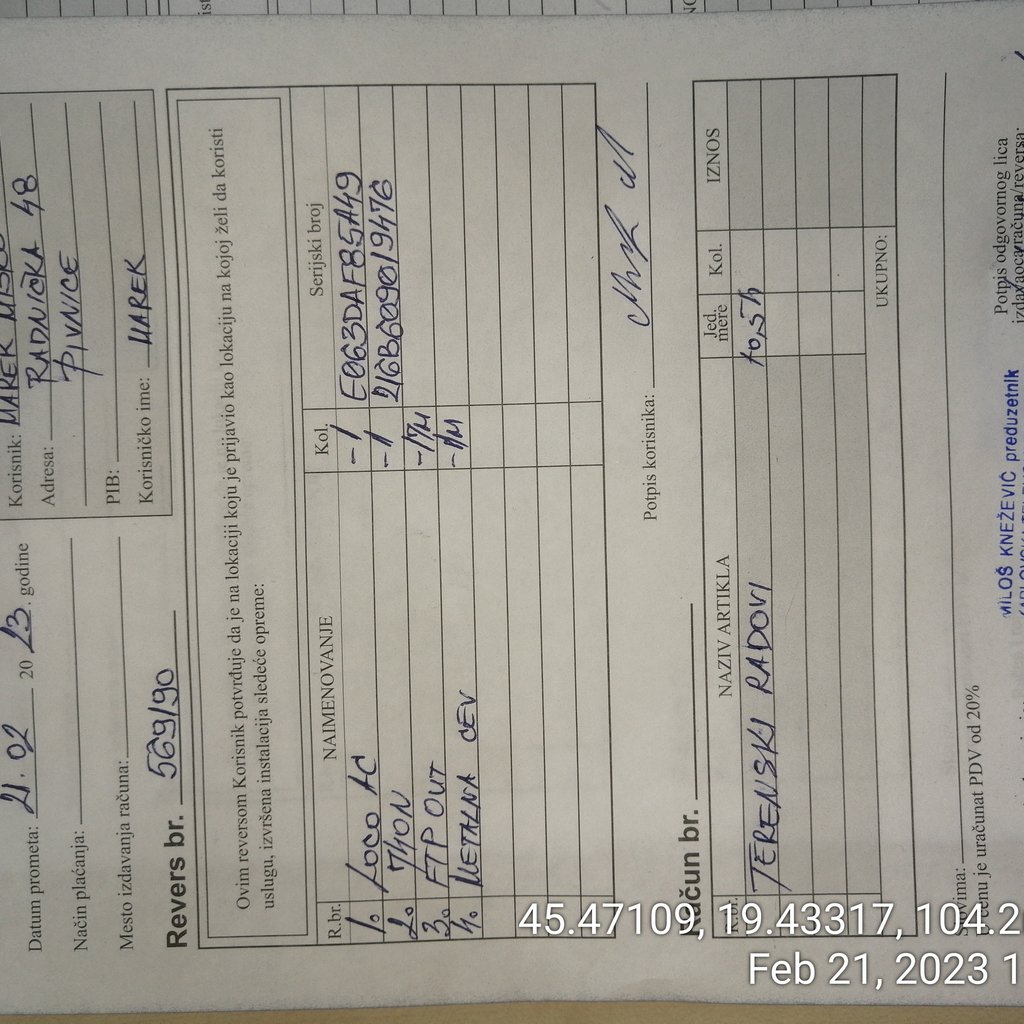 Datum prometa: 21.02 2023. godine
Način plaćanja:
Mesto izdavanja računa:
Korisnik: MAREK
Adresa: RADNIČKA 48
PIVNICE
PIB:
Korisničko ime: MAREK
Revers br. 569/90
Ovim reversom Korisnik potvrđuje da je na lokaciji koju je prijavio kao lokaciju na kojoj želi da koristi
uslugu, izvršena instalacija sledeće opreme:
R.br. NAIMENOVANJE Kol. Serijski broj
1. LOCO AC -1 E063DAF85A49
2. -1 216B609019476
3. FTP OUT -17M
4. METALNA CEV -1M
Potpis korisnika:
Račun br.
R.br. NAZIV ARTIKLA Jed. mere Kol. IZNOS
TERENSKI RADOVI
UKUPNO:
Slovima:
U cenu je uračunat PDV od 20%
Potpis odgovornog lica
izdavaoca računa/reversa:
MILOŠ KNEŽEVIĆ preduzetnik
45.47109, 19.43317, 104.2
Feb 21, 2023 1